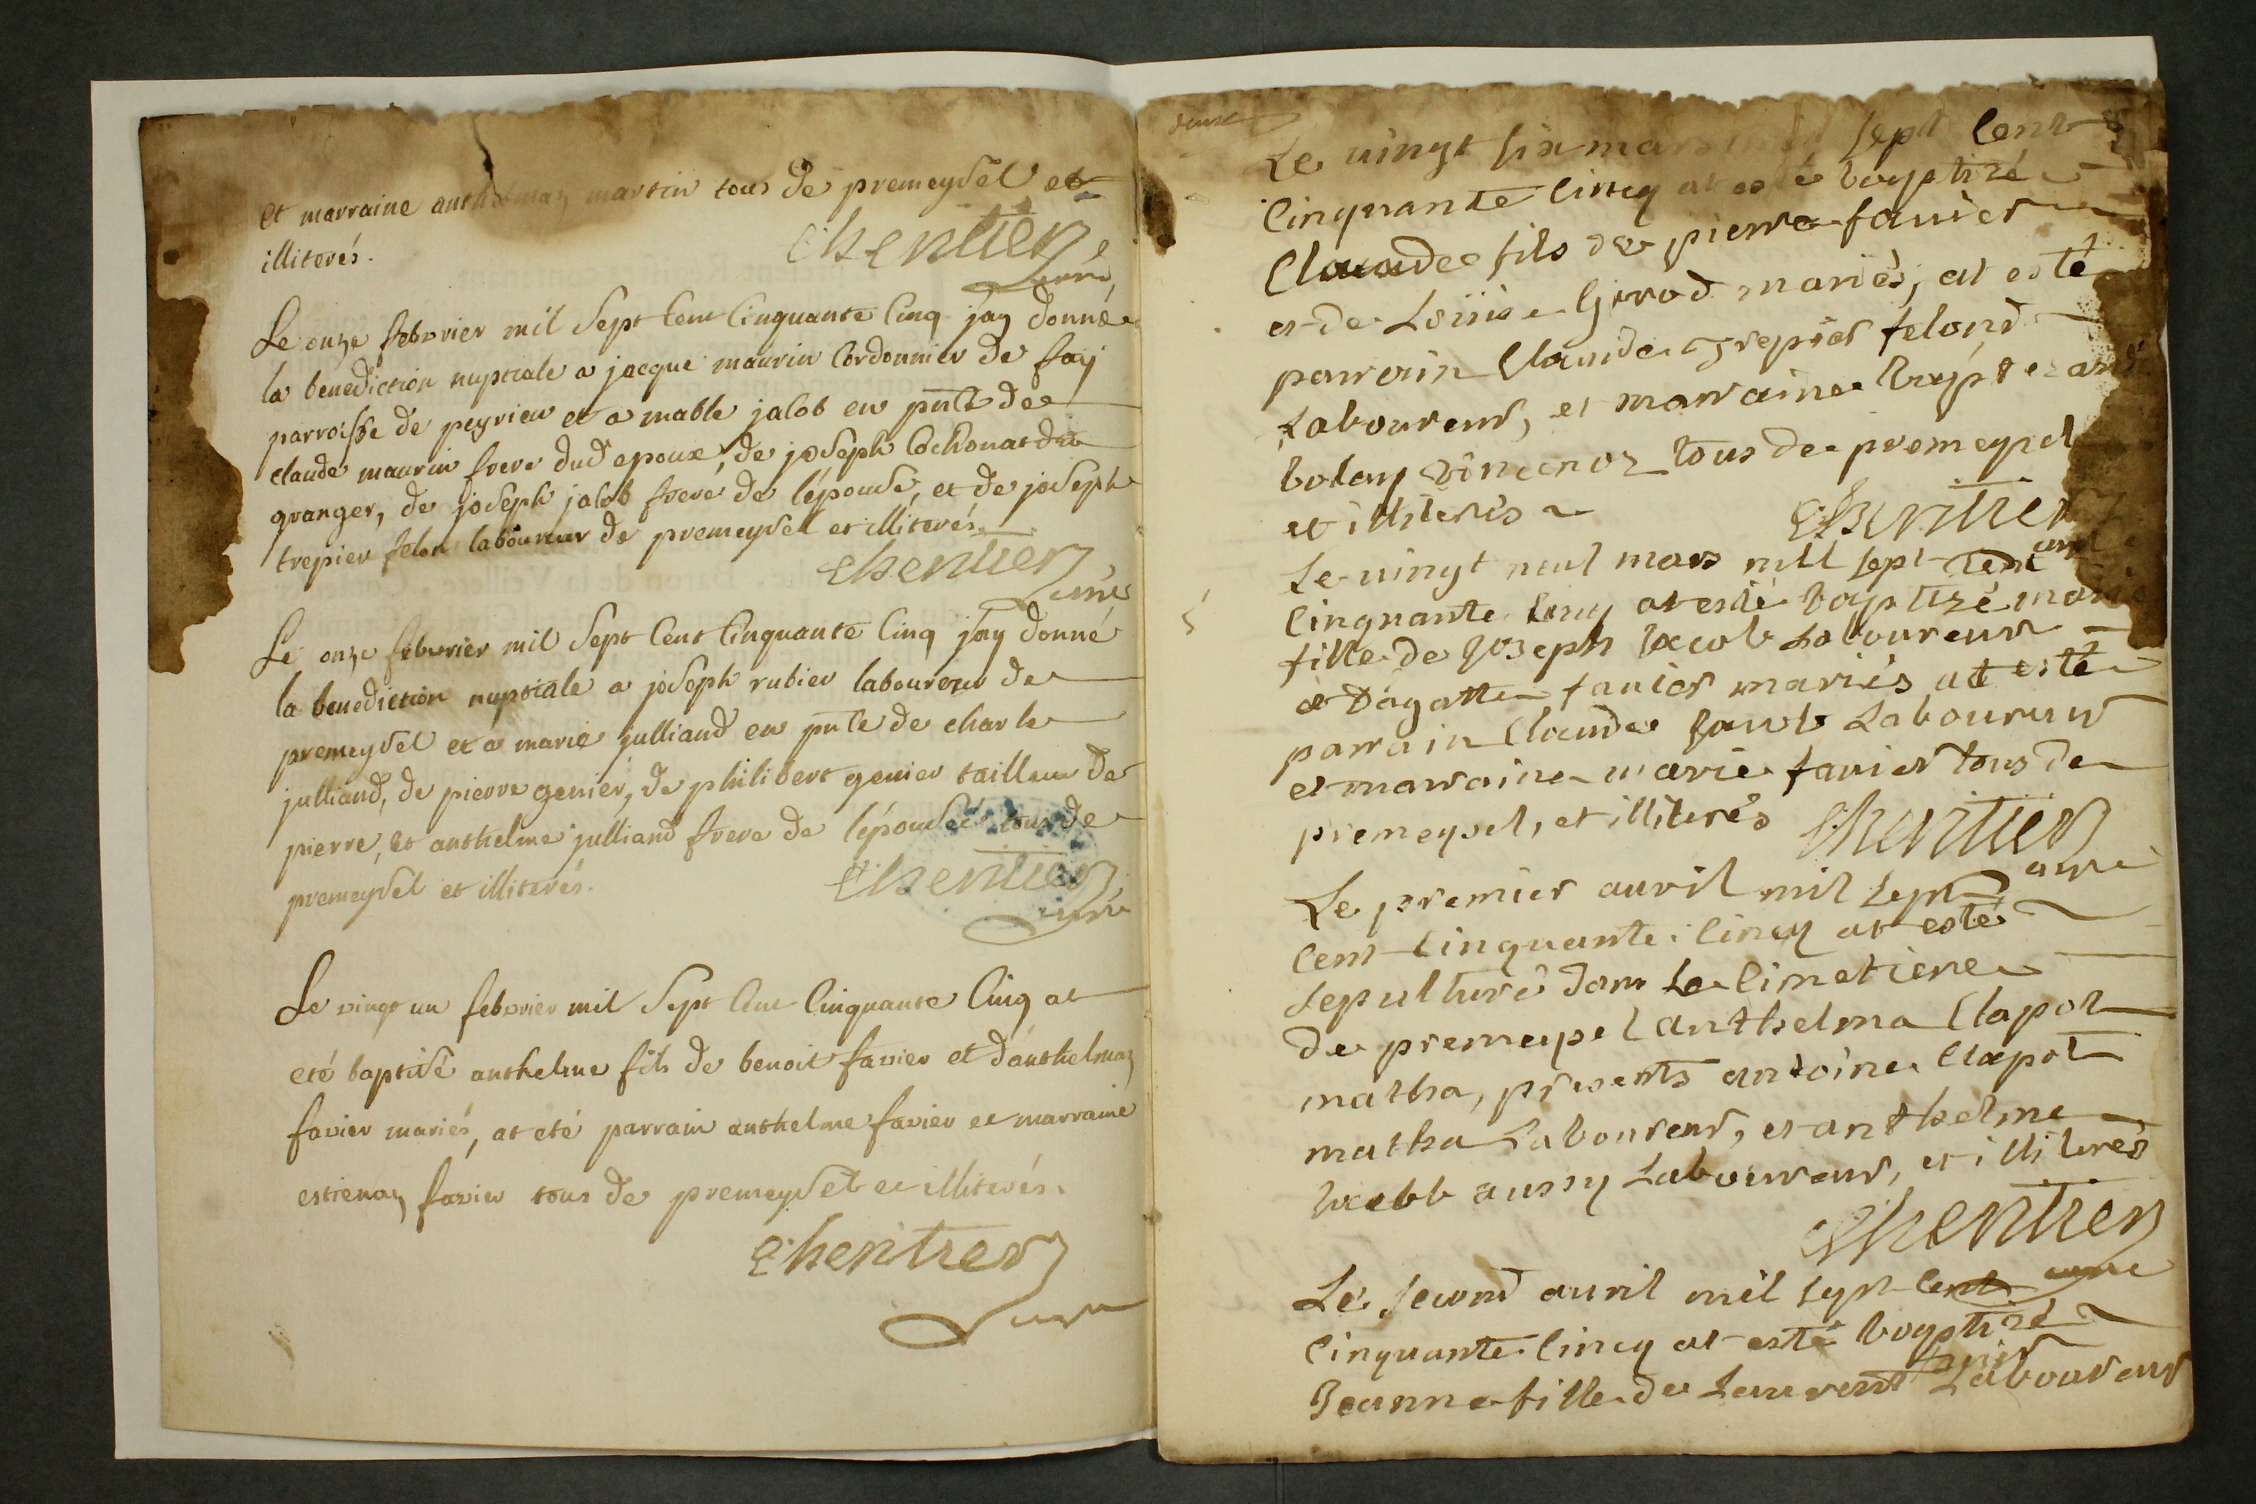 et marraine anthelmaz martin tous de premeysel et
illiterés.
Chentier
curé
Le onze febvrier mil sept Cent Cinquante Cinq jay donné
la bénediction nuptiale a jacque maurin Cordonnier de fay
parroisse de peyrieu et a mable jacob en pnte de
claude maurin frere dud epoux, de joseph Cochonat dit
granger, de joseph jacob frere de lépouse, et de joseph
trepier felon laboureur de premeysel et illiterés.
Chentier
curé
Le onze febvrier mil sept Cent Cinquante Cinq jay donné
la benediction nuptiale a joseph rubier laboureur de
premeysel et a marie julliand en pnte de charle
julliand, de pierre genier, de philibert genier tailleur de
pierre, et anthelme julliand frere de lépousée tous de
premeysel et illiterés.
Chentier
curé
Le vingt un febvrier mil sept Cent Cinquante Cinq at
eté baptisé anthelme fils de benoit favier et d'anthelmaz
favier mariés, at eté parrain anthelme favier et marraine
estienaz favier tous de premeysel et illiterés.
Chentier
curé
Le vingt six mars mil sept Cent
Cinquante Cincq at esté baptizé
Claude fils de pierre favier
et de Loüise Girod mariés, at esté
parrain Claude Trepier felond
Laboureur, et marraine
tous de premeysel
et illiterés
Chentier
curé
Le vingt neuf mars mill sept Cent
Cinquante Cincq at esté baptizé marie
fille de Joseph Jacob Laboureur
et D'agatte favier mariés at esté
parrain Claude Jacob Laboureur
et marraine marie favier tous de
premeysel, et illiterés
Chentier
curé
Le premier avril mil sept
Cent Cinquante Cincq at esté
sepulturé dans Le Cimetiere
de premeysel anthelma Clapot
matha, presents antoine Clapot
matha Laboureur, et anthelme
Jacob aussy Laboureur, et illiterés
Chentier
curé
Le second avril mil sept Cent
Cinquante Cincq at esté baptizé
favier
Jeanne fille de Laurent Laboureur